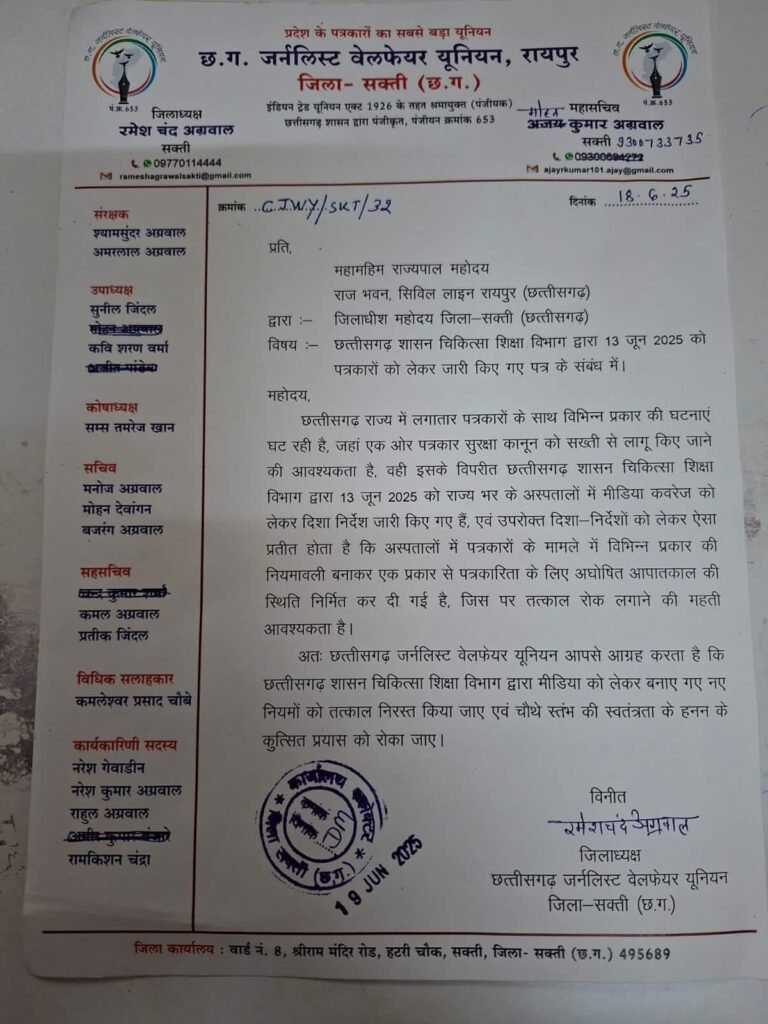 प्रदेश के पत्रकारों का सबसे बड़ा यूनियन
छ.ग. जर्नलिस्ट वेलफेयर यूनियन, रायपुर
जिला- सक्ती (छ.ग.)
इंडियन ट्रेड यूनियन एक्ट 1926 के तहत श्रमायुक्त (पंजीयक)
छत्तीसगढ़ शासन द्वारा पंजीकृत, पंजीयन क्रमांक 653
छ.ग. जर्नलिस्ट वेलफेयर यूनियन
पं.क्र.653
छ.ग. जर्नलिस्ट वेलफेयर यूनियन
पं.क्र.653
जिलाध्यक्ष
रमेश चंद अग्रवाल
सक्ती
09770114444
rameshagrawalsakti@gmail.com
महासचिव
मोहन
अजय कुमार अग्रवाल
सक्ती 9300733735
09300694272
ajayrkumar101.ajay@gmail.com
क्रमांक ..C.J.W.Y/SKT/32
दिनांक 18.6.25
संरक्षक
श्यामसुंदर अग्रवाल
अमरलाल अग्रवाल
उपाध्यक्ष
सुनील जिंदल
मोहन अग्रवाल
कवि शरण वर्मा
अजीत पांडेय
कोषाध्यक्ष
सम्स तमरेज खान
सचिव
मनोज अग्रवाल
मोहन देवांगन
बजरंग अग्रवाल
सहसचिव
कुमार शर्मा
कमल अग्रवाल
प्रतीक जिंदल
विधिक सलाहकार
कमलेश्वर प्रसाद चौबे
कार्यकारिणी सदस्य
नरेश गेवाडीन
नरेश कुमार अग्रवाल
राहुल अग्रवाल
कुमार
रामकिशन चंद्रा
प्रति,
महामहिम राज्यपाल महोदय
राज भवन, सिविल लाइन रायपुर (छत्तीसगढ़)
द्वारा :– जिलाधीश महोदय जिला–सक्ती (छत्तीसगढ़)
विषय :– छत्तीसगढ़ शासन चिकित्सा शिक्षा विभाग द्वारा 13 जून 2025 को
पत्रकारों को लेकर जारी किए गए पत्र के संबंध में।
महोदय,
छत्तीसगढ़ राज्य में लगातार पत्रकारों के साथ विभिन्न प्रकार की घटनाएं
घट रही है, जहां एक ओर पत्रकार सुरक्षा कानून को सख्ती से लागू किए जाने
की आवश्यकता है, वही इसके विपरीत छत्तीसगढ़ शासन चिकित्सा शिक्षा
विभाग द्वारा 13 जून 2025 को राज्य भर के अस्पतालों में मीडिया कवरेज को
लेकर दिशा निर्देश जारी किए गए हैं, एवं उपरोक्त दिशा–निर्देशों को लेकर ऐसा
प्रतीत होता है कि अस्पतालों में पत्रकारों के मामले में विभिन्न प्रकार की
नियमावली बनाकर एक प्रकार से पत्रकारिता के लिए अघोषित आपातकाल की
स्थिति निर्मित कर दी गई है, जिस पर तत्काल रोक लगाने की महती
आवश्यकता है।
अतः छत्तीसगढ़ जर्नलिस्ट वेलफेयर यूनियन आपसे आग्रह करता है कि
छत्तीसगढ़ शासन चिकित्सा शिक्षा विभाग द्वारा मीडिया को लेकर बनाए गए नए
नियमों को तत्काल निरस्त किया जाए एवं चौथे स्तंभ की स्वतंत्रता के हनन के
कुत्सित प्रयास को रोका जाए।
कार्यालय कलेक्टर
DM
जिला सक्ती (छ.ग.)
19 JUN 2025
विनीत
रमेशचंद अग्रवाल
जिलाध्यक्ष
छत्तीसगढ़ जर्नलिस्ट वेलफेयर यूनियन
जिला–सक्ती (छ.ग.)
जिला कार्यालय : वार्ड नं. 8, श्रीराम मंदिर रोड, हटरी चौक, सक्ती, जिला- सक्ती (छ.ग.) 495689